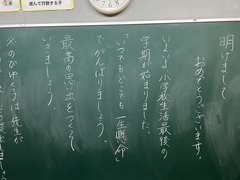 進んで行動する子
明けまして
おめでとうございます。
いよいよ小学校生活最後の
学期が始まりました。
「いつでもどこでも一生懸命」
でがんばりましょう。
最高の思い出をつくって
いきましょう。
※のびゆくうは先生が